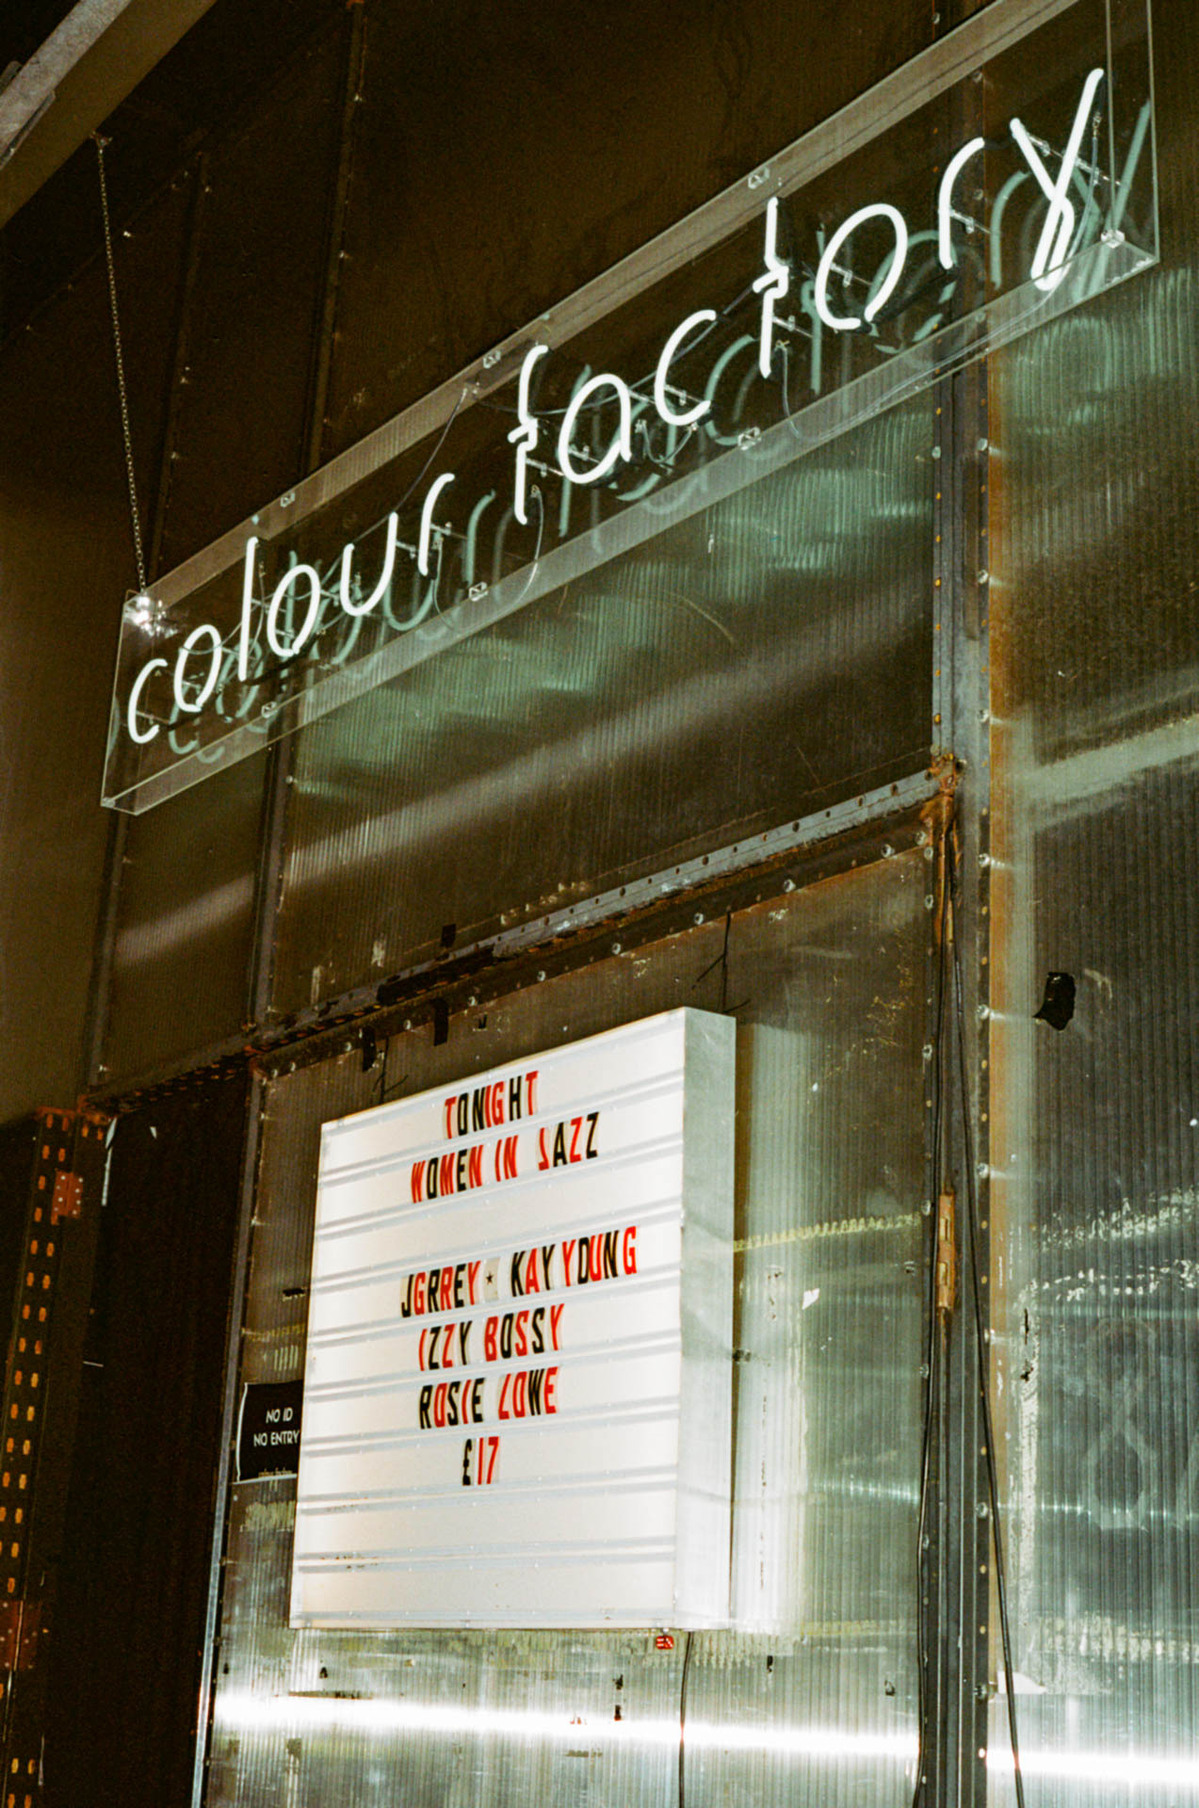 colour factory
TONIGHT
WOMEN IN JAZZ
JGRREY ★ KAY YOUNG
IZZY BOSSY
ROSIE LOWE
£17
NO ID
NO ENTRY